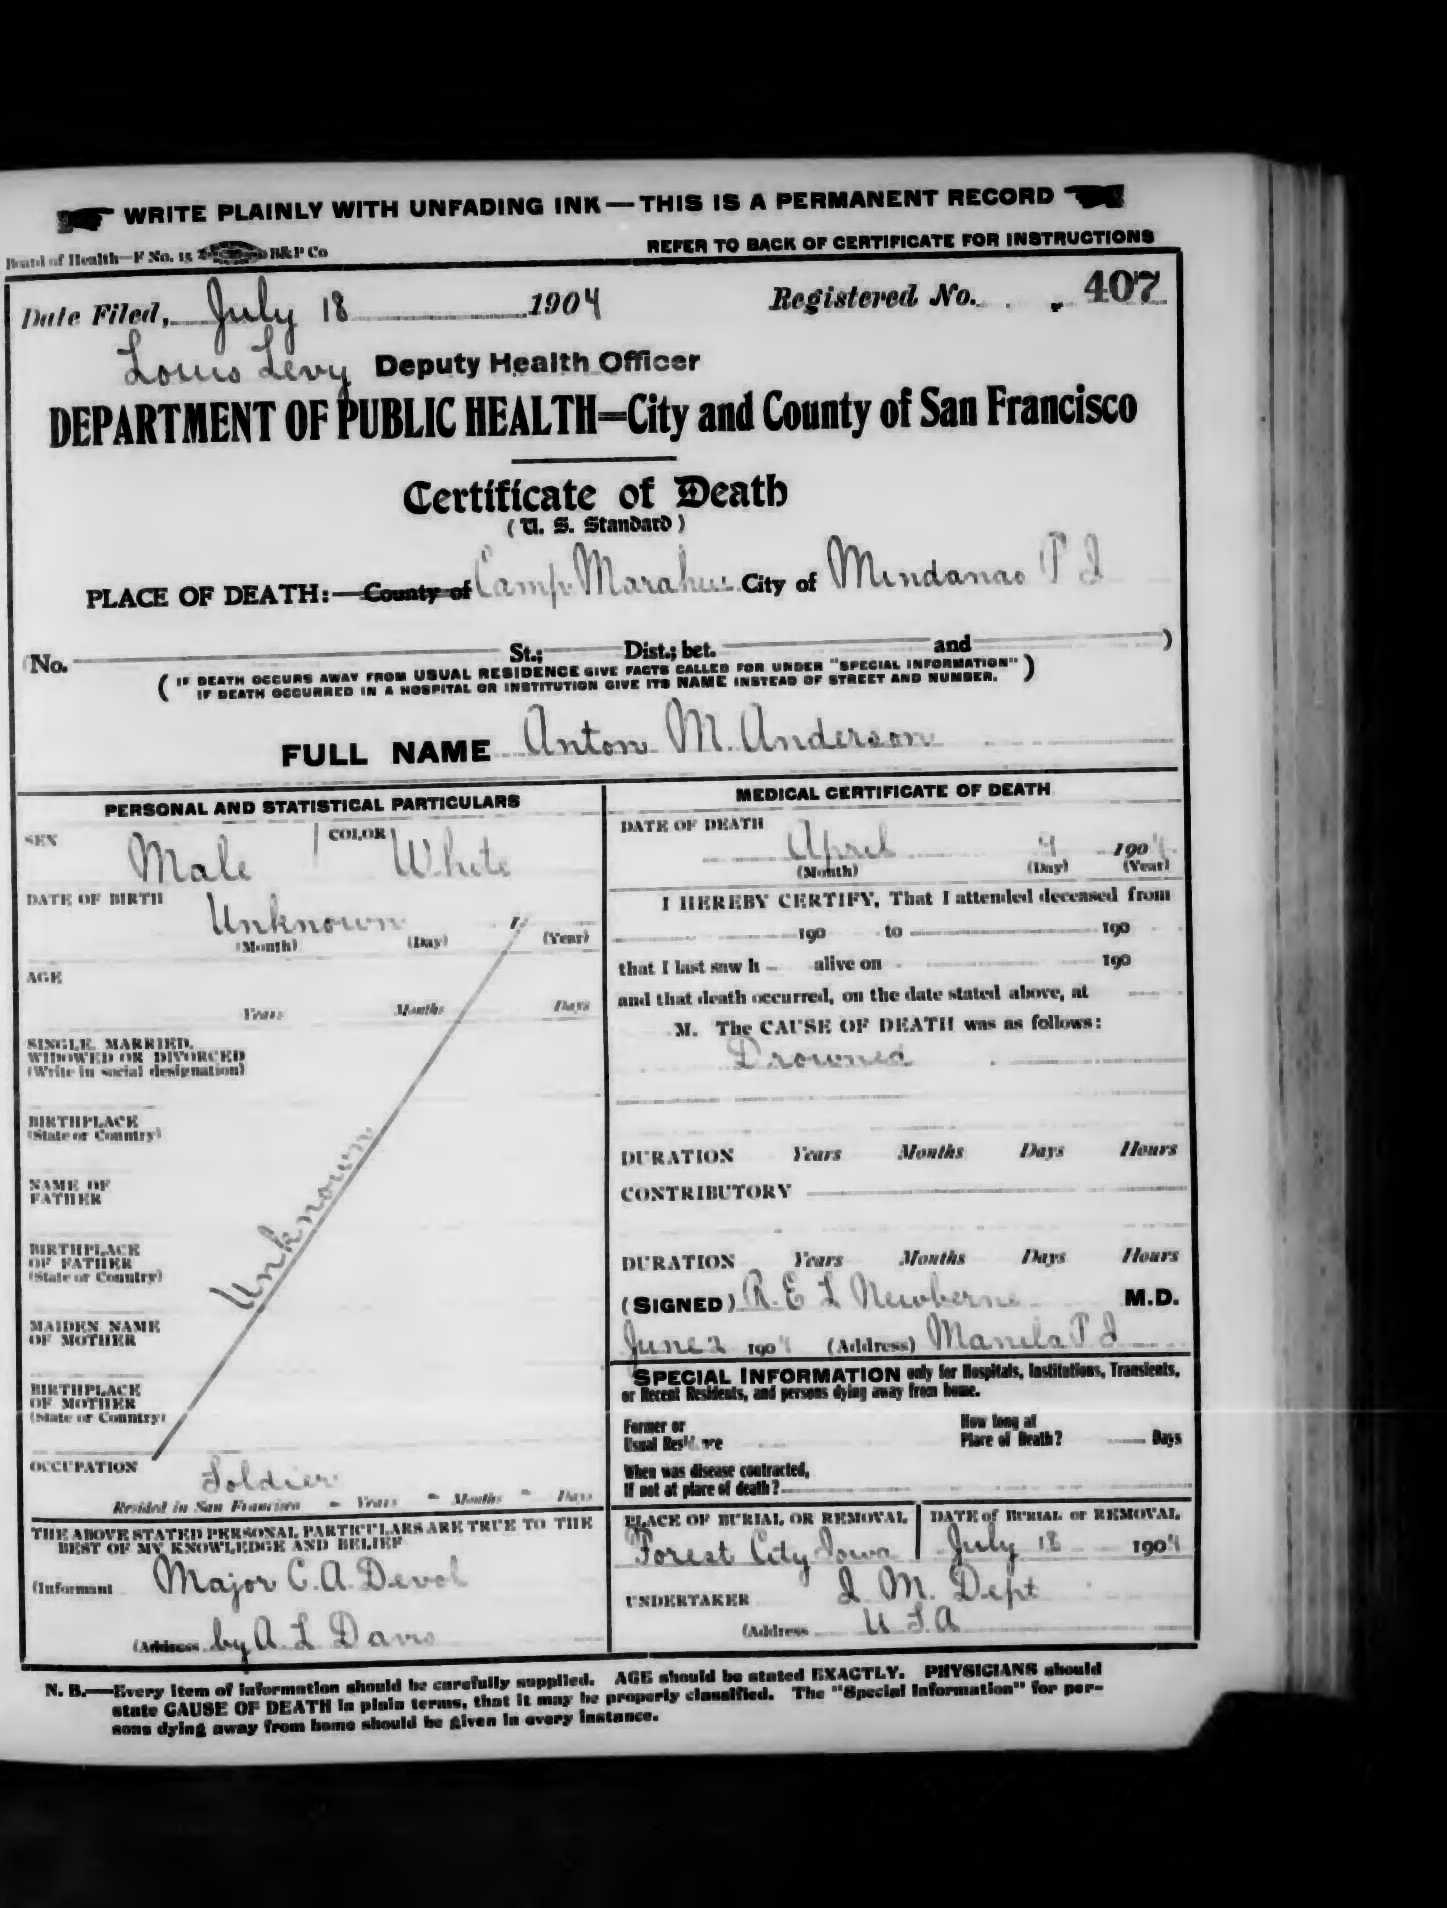 WRITE PLAINLY WITH UNFADING INK — THIS IS A PERMANENT RECORD
Board of Health—F No. 15 B&P Co
REFER TO BACK OF CERTIFICATE FOR INSTRUCTIONS
Date Filed, July 18 1904 Registered No. 407
Louis Levy Deputy Health Officer
DEPARTMENT OF PUBLIC HEALTH=City and County of San Francisco
Certificate of Death
(U. S. Standard)
PLACE OF DEATH:—County of Camp Marahui City of Mindanao P I
(No. St.; Dist.; bet. and )
( IF DEATH OCCURS AWAY FROM USUAL RESIDENCE GIVE FACTS CALLED FOR UNDER "SPECIAL INFORMATION" )
IF DEATH OCCURRED IN A HOSPITAL OR INSTITUTION GIVE ITS NAME INSTEAD OF STREET AND NUMBER.
FULL NAME Anton M. Anderson
PERSONAL AND STATISTICAL PARTICULARS
SEX Male COLOR White
DATE OF BIRTH Unknown 1
(Month) (Day) (Year)
AGE
Years Months Days
SINGLE, MARRIED,
WIDOWED OR DIVORCED
(Write in social designation)
BIRTHPLACE
(State or Country)
Unknown
NAME OF
FATHER
BIRTHPLACE
OF FATHER
(State or Country)
MAIDEN NAME
OF MOTHER
BIRTHPLACE
OF MOTHER
(State or Country)
OCCUPATION Soldier
Resided in San Francisco - Years - Months - Days
THE ABOVE STATED PERSONAL PARTICULARS ARE TRUE TO THE
BEST OF MY KNOWLEDGE AND BELIEF
(Informant Major C. A. Devol
(Address by A. L Davis
MEDICAL CERTIFICATE OF DEATH
DATE OF DEATH
April 9 1904
(Month) (Day) (Year)
I HEREBY CERTIFY, That I attended deceased from
190 to 190
that I last saw h alive on 190
and that death occurred, on the date stated above, at
M. The CAUSE OF DEATH was as follows:
Drowned
DURATION Years Months Days Hours
CONTRIBUTORY
DURATION Years Months Days Hours
(SIGNED) R. E L Newberne M.D.
June 2 1904 (Address) Manila P I
SPECIAL INFORMATION only for Hospitals, Institutions, Transients,
or Recent Residents, and persons dying away from home.
Former or
Usual Residence
How long at
Place of Death? Days
When was disease contracted,
If not at place of death?
PLACE OF BURIAL OR REMOVAL
Forest City Iowa
DATE of BURIAL or REMOVAL
July 18 1904
UNDERTAKER Q M. Dept
(Address U S A
N. B.—Every item of information should be carefully supplied. AGE should be stated EXACTLY. PHYSICIANS should
state CAUSE OF DEATH in plain terms, that it may be properly classified. The "Special Information" for per-
sons dying away from home should be given in every instance.